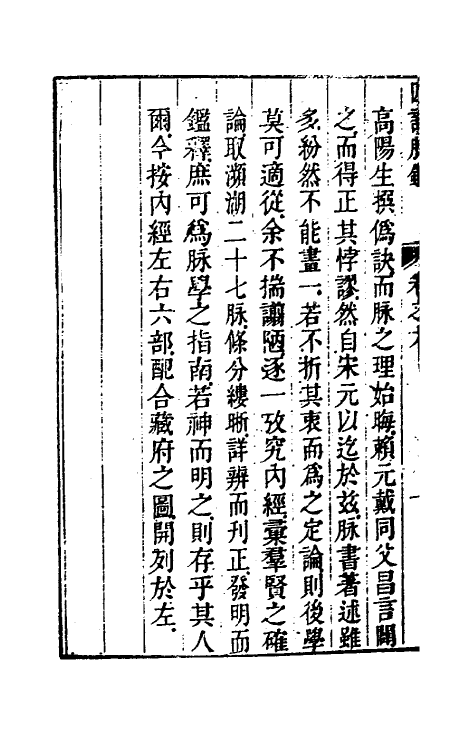 高陽生撰僞訣而脉之理始晦頼元戴同父昌言闢
之而得正其悖謬然自宋元以迄於兹脉書著述雖
多紛然不能畫一若不折其衷而爲之定論則後學
莫可適從余不揣譾陋逐一攷究內經彚羣賢之確
論取瀕湖二十七脉條分縷晰詳辨而刊正發明而
鑑釋庶可爲脉學之指南若神而明之則存乎其人
爾今按內經左右六部配合藏府之圖開列於左